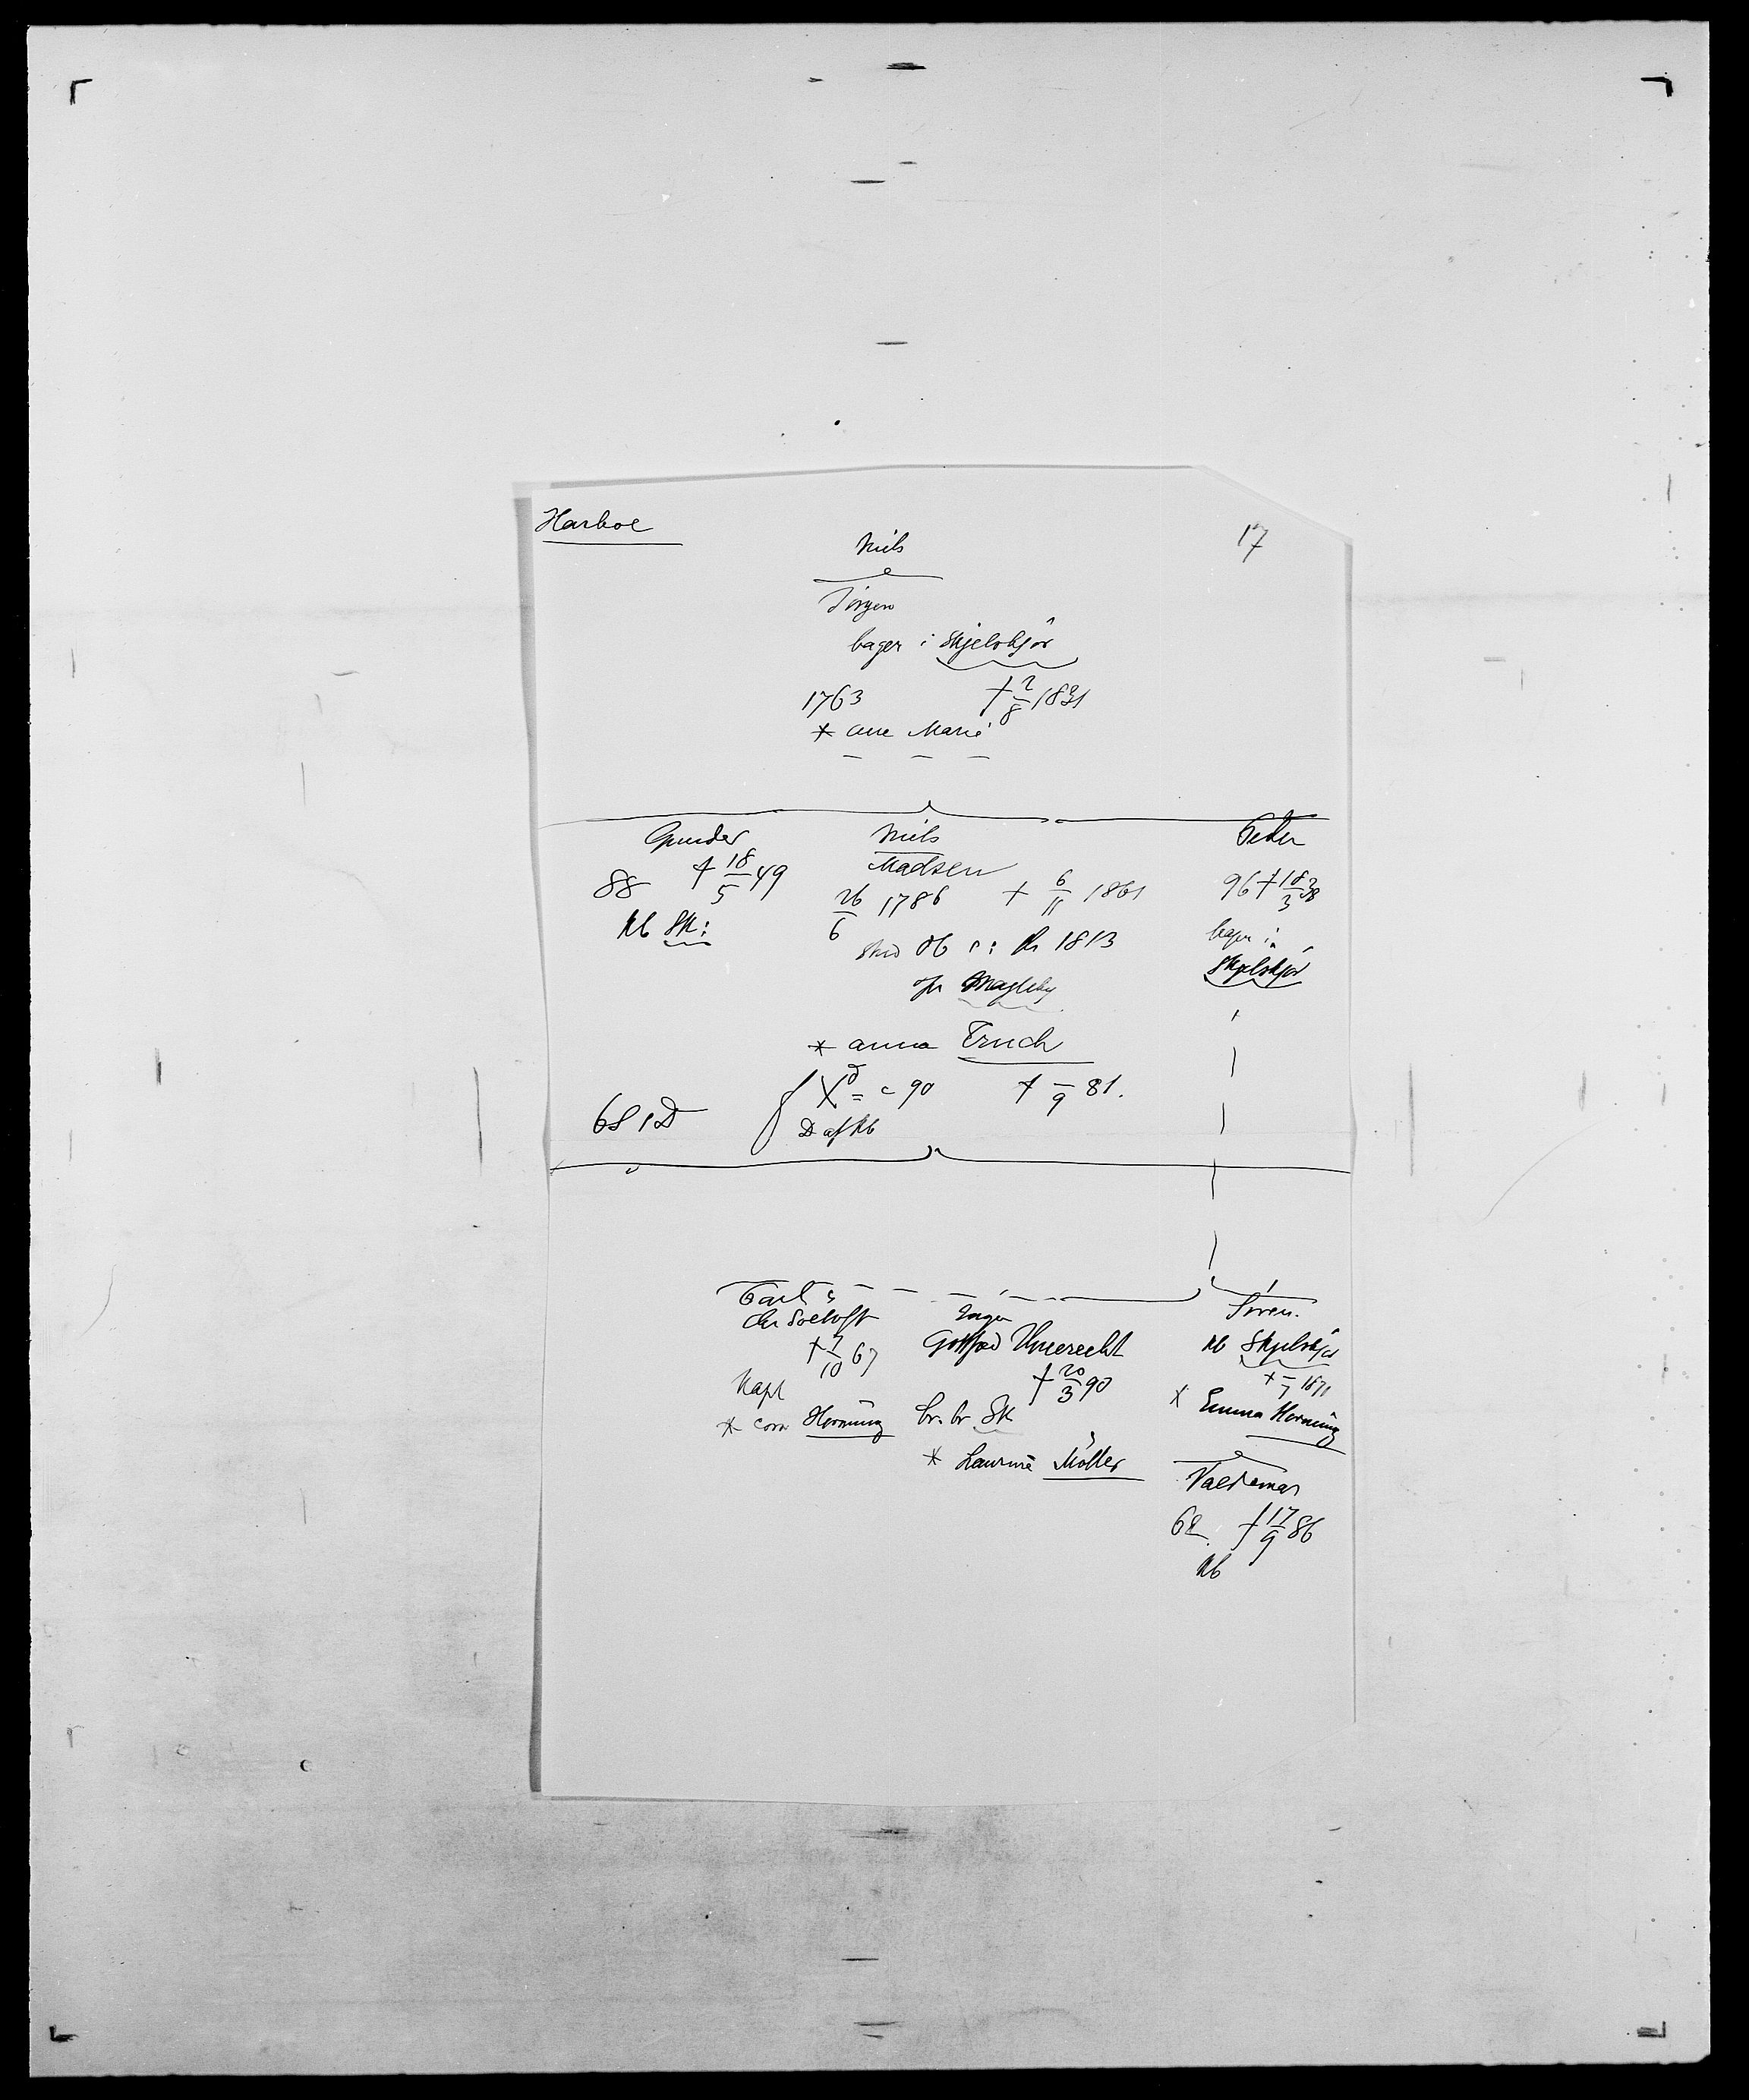 Harboe
17
Niels
Jörgen
bager i Skjelskjör
1763 † 2/8 1831
* ane Marie
— — —
Gunder
† 18/5 49
88
kb SK:
Niels
Madsen
26/6 1786 † 6/11 1861
1813
Magleby
* anna Truch
= c 90 † –/9 81.
D af kb
6 S 1 D
Peter
96 † 18/3 38
bager i
Skjelskjör
Carl
Chr Soetoft
† 7/10 67
Kapt
* Hornung
Gottfred
† 20/3 90
br. br SK
* Laurine Möller
Sören.
kb Skjelskjör
† –/7 1871
* Emma Hornung
Valdemar
62. † 17/9 86
kb